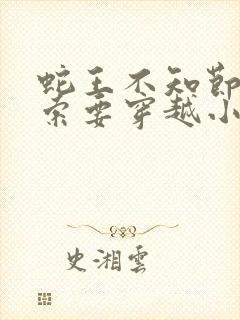 蛇王不知節
索要穿越小
史湘雲